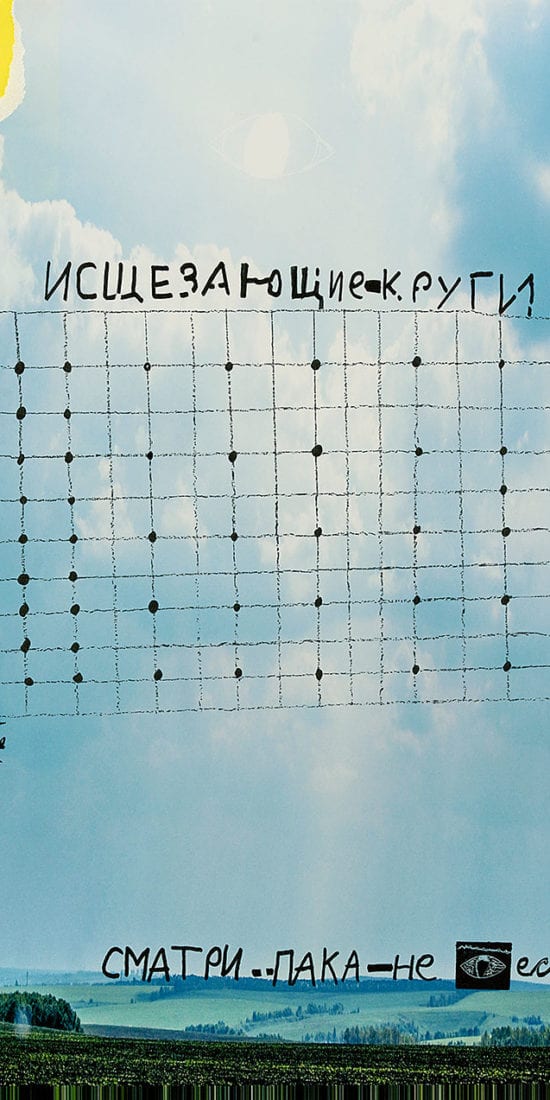 ИСЩЕЗАЮЩИе-К.РУГИ
СМАТРИ..ПАКА-Не ес